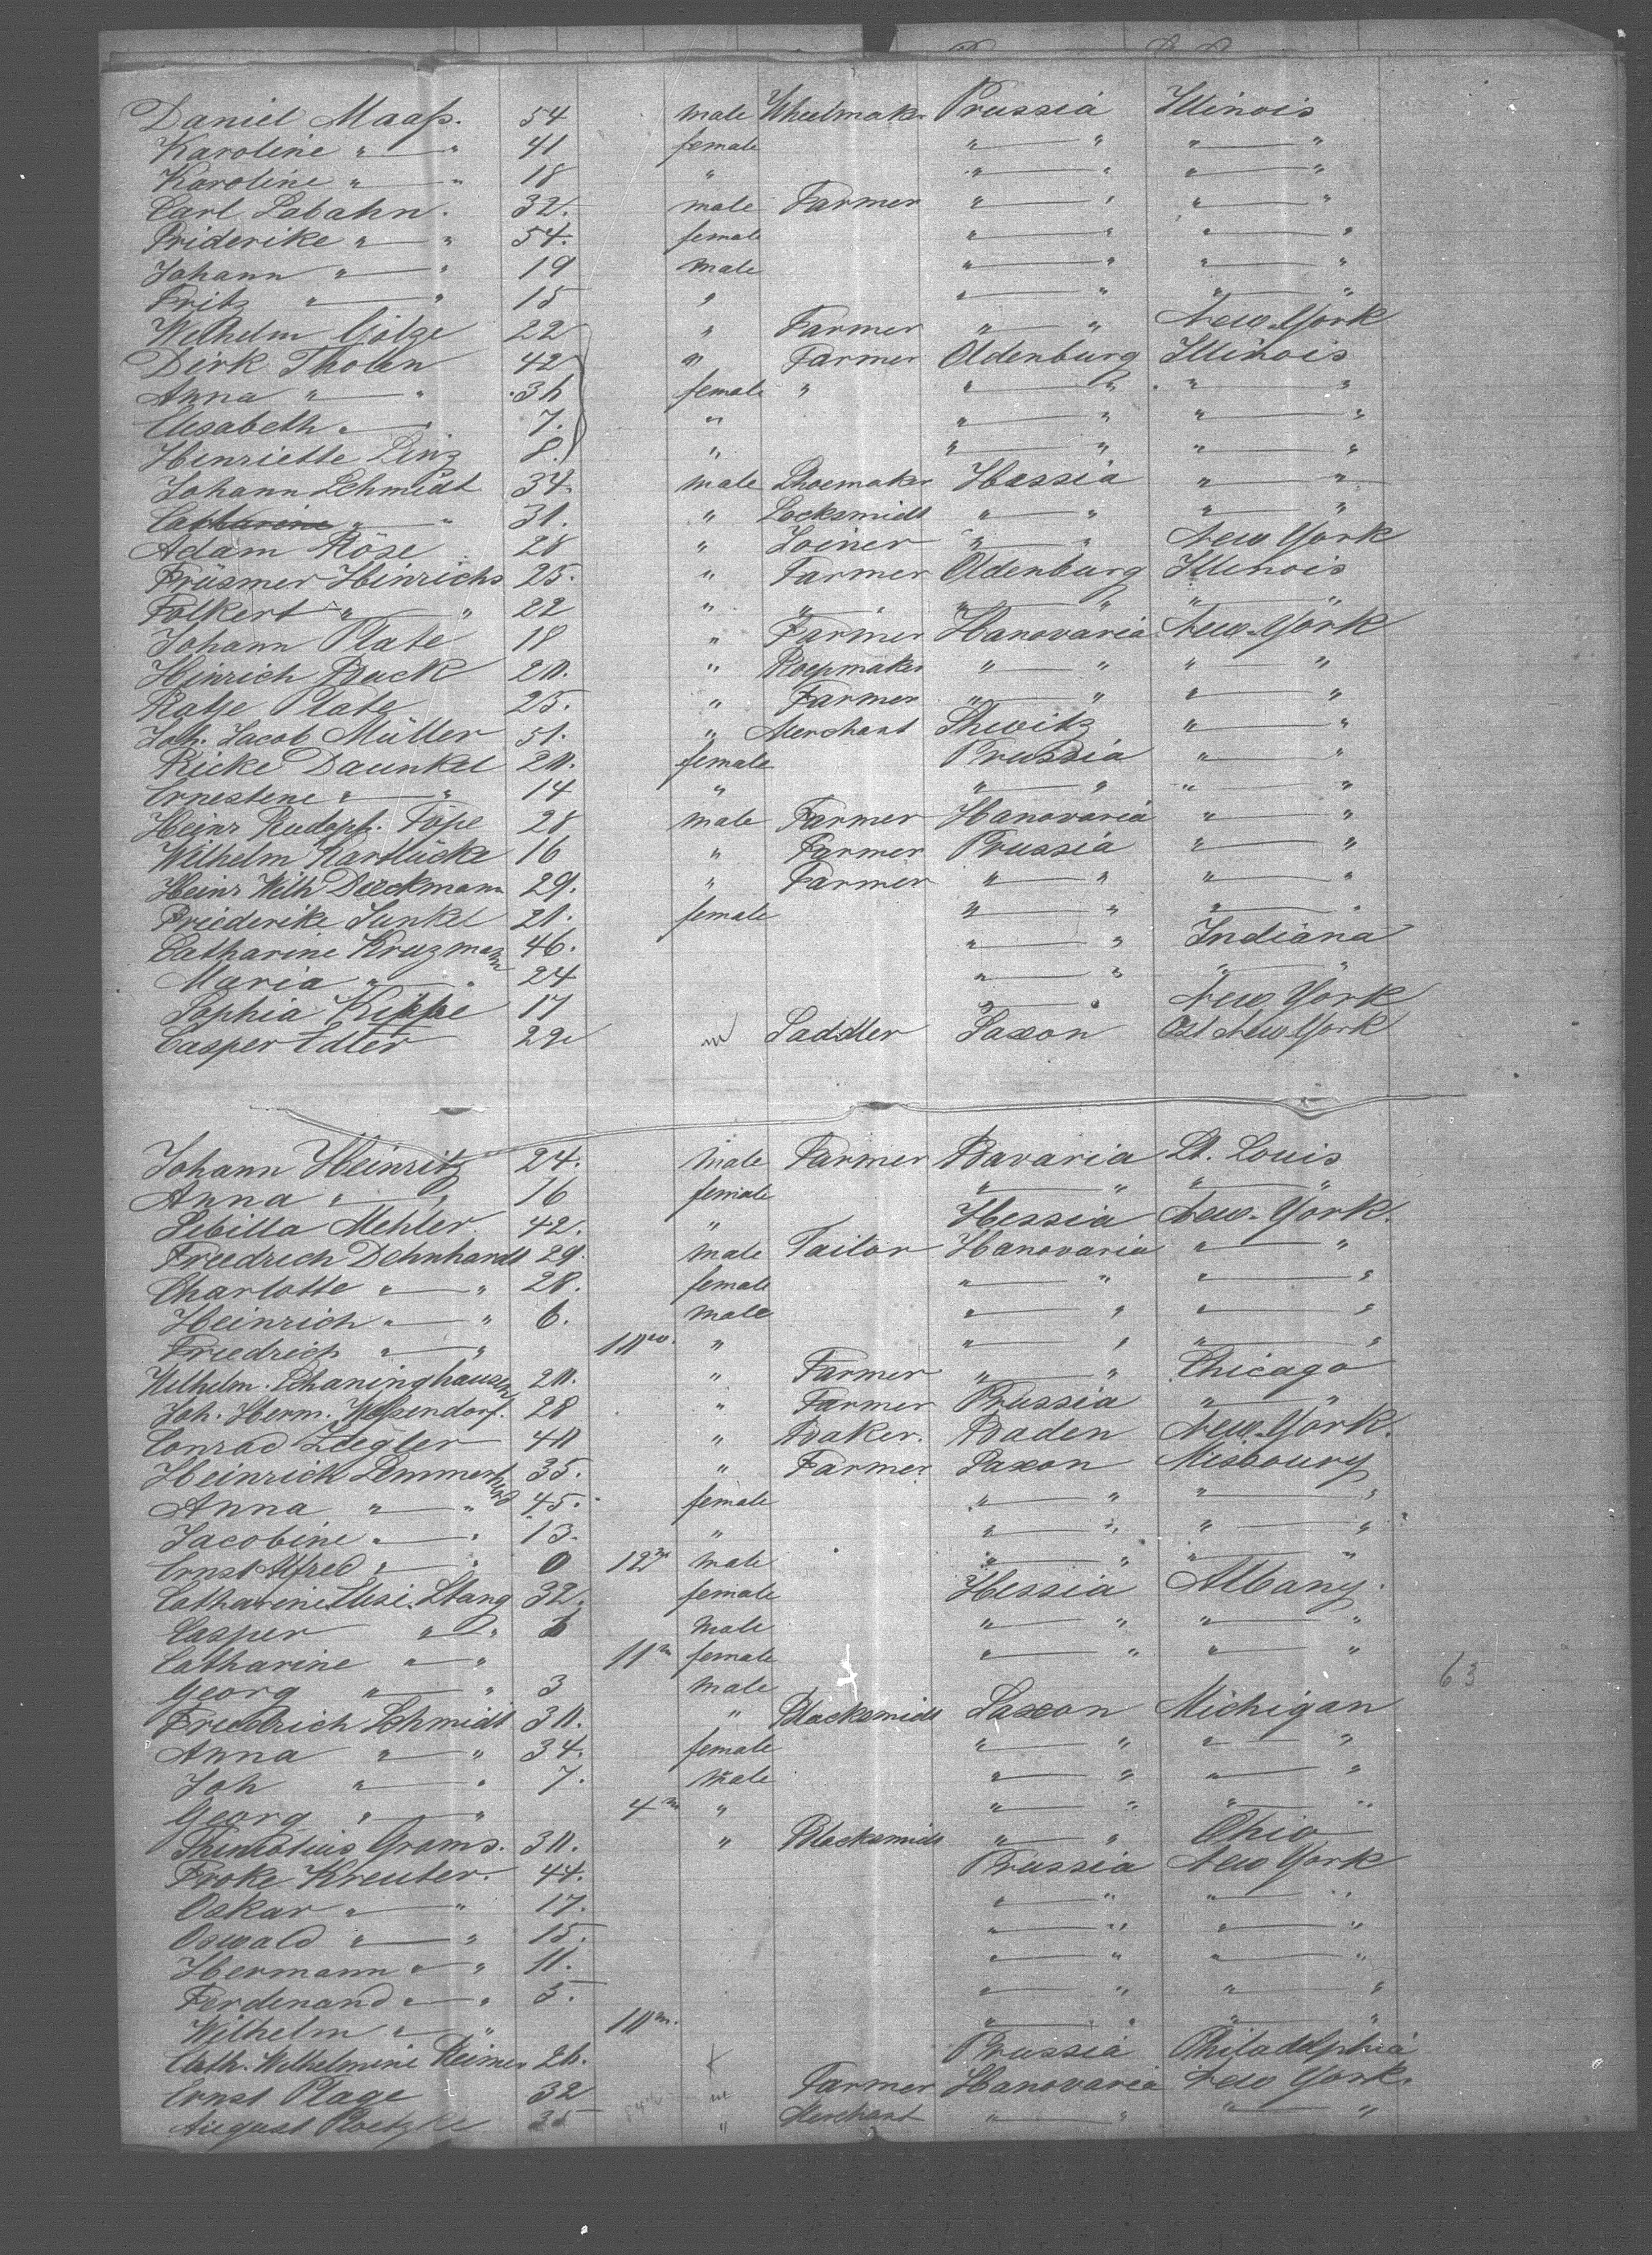 Daniel Maaß. 54 male Wheelmaker Prussia Illinois
Karoline " — " 41 female " — " " — "
Karoline " — " 18 " " — " " — "
Carl Labahn. 32. male Farmer " — " " — "
Friderike " — " 54. female " — " " — "
Johann " — " 19 male " — " " — "
Fritz " — " 15 " " — " " — "
Wilhelm Götze 22 " Farmer " — " New-York
Dirk Tholen 42 " Farmer Oldenburg Illinois
Anna " — " 36 female " " — " " — "
Elisabeth " — " 7. " " — " " — "
Henriette Linz 8. " " — " " — "
Johann Schmidt 34. male Shoemaker Hassia " — "
Catharine " — " 31. " Locksmidt " — " " — "
Adam Röse 28 " Joiner " — " New York
Früsmer Hinrichs 25. " Farmer Oldenburg Illinois
Folkert " — " 22 " " — " " — " " — "
Johann Plate 18 " Farmer Hanovaria New-York
Hinrich Buck 20. " Roepmaker " — " " — "
Ratje Plate 25. " Farmer " — " " — "
Joh. Jacob Müller 51. " Merchant Shwitz " — "
Ricke Daunkel 20. female Prussia " — "
Ernestene " — " 14 " " — " " — "
Heinr Rudoph. Töpe 28 male Farmer Hanovaria " — "
Wilhelm Kartlücke 16 " Farmer Prussia " — "
Heinr Wilh Dieckmann 29. " Farmer " — " " — "
Friederike Sunkel 21. female " — " " — "
Catharine Krugmann 46. " — " Indiana
Maria " — " 24 " — " " — "
Sophia Kippe 17 " — " New York
Casper Edler 22 m Saddler Saxon Ost New York
Johann Heinritz 24. male Farmer Bavaria St. Louis
Anna " — " 16 female " — " " — "
Sebilla Mehler 42. " Hessia New-York.
Friedrich Dehnhardt 29. male Tailor Hanovaria " — "
Charlotte " — " 28. female " — " " — "
Heinrich " — " 6. male " — " " — "
Friedrich " — " 10 " " — " " — "
Wilhelm. Schaninghausen 20. " Farmer " — " Chicago
Joh. Herm. Wessendorf. 28 " Farmer Prussia " — "
Conrad Ziegler 40 " Baker. Baden New-York.
Heinrich Lemmerhird 35. " Farmer Saxon Missoury
Anna " — " 45. female " — " " — "
Jacobine " — " 13. " " — " " — "
Ernst Alfred " — " 0 12m male " — " " — "
Catharine Stang 32. female Hessia Albany.
Casper " — " male " — " " — "
Catharine " — " 11m female " — " " — "
Georg " — " 3 male
63
Friedrich Schmidt 30. " Blacksmidt Saxon Michigan
Anna " — " 34. female " — " " — "
Joh " — " 7. male " — " " — "
Georg " — " 4m " " — " " — "
Grams. 30. " Blacksmidt " — " Ohio
Froke Kreuter. 44. Prussia New York
Oskar " — " 17. " — " " — "
Oswald " — " 15. " — " " — "
Hermann " — " 11. " — " " — "
Ferdenand " — " 5. " — " " — "
Wilhelm " — " 10m. " — " " — "
Cath. Wilhelmine Reimer 26. f Prussia Philadelphia
Ernst Plage 32 m Farmer Hanovaria New York.
August Ploetzke 35 " Merchant " — " " — "